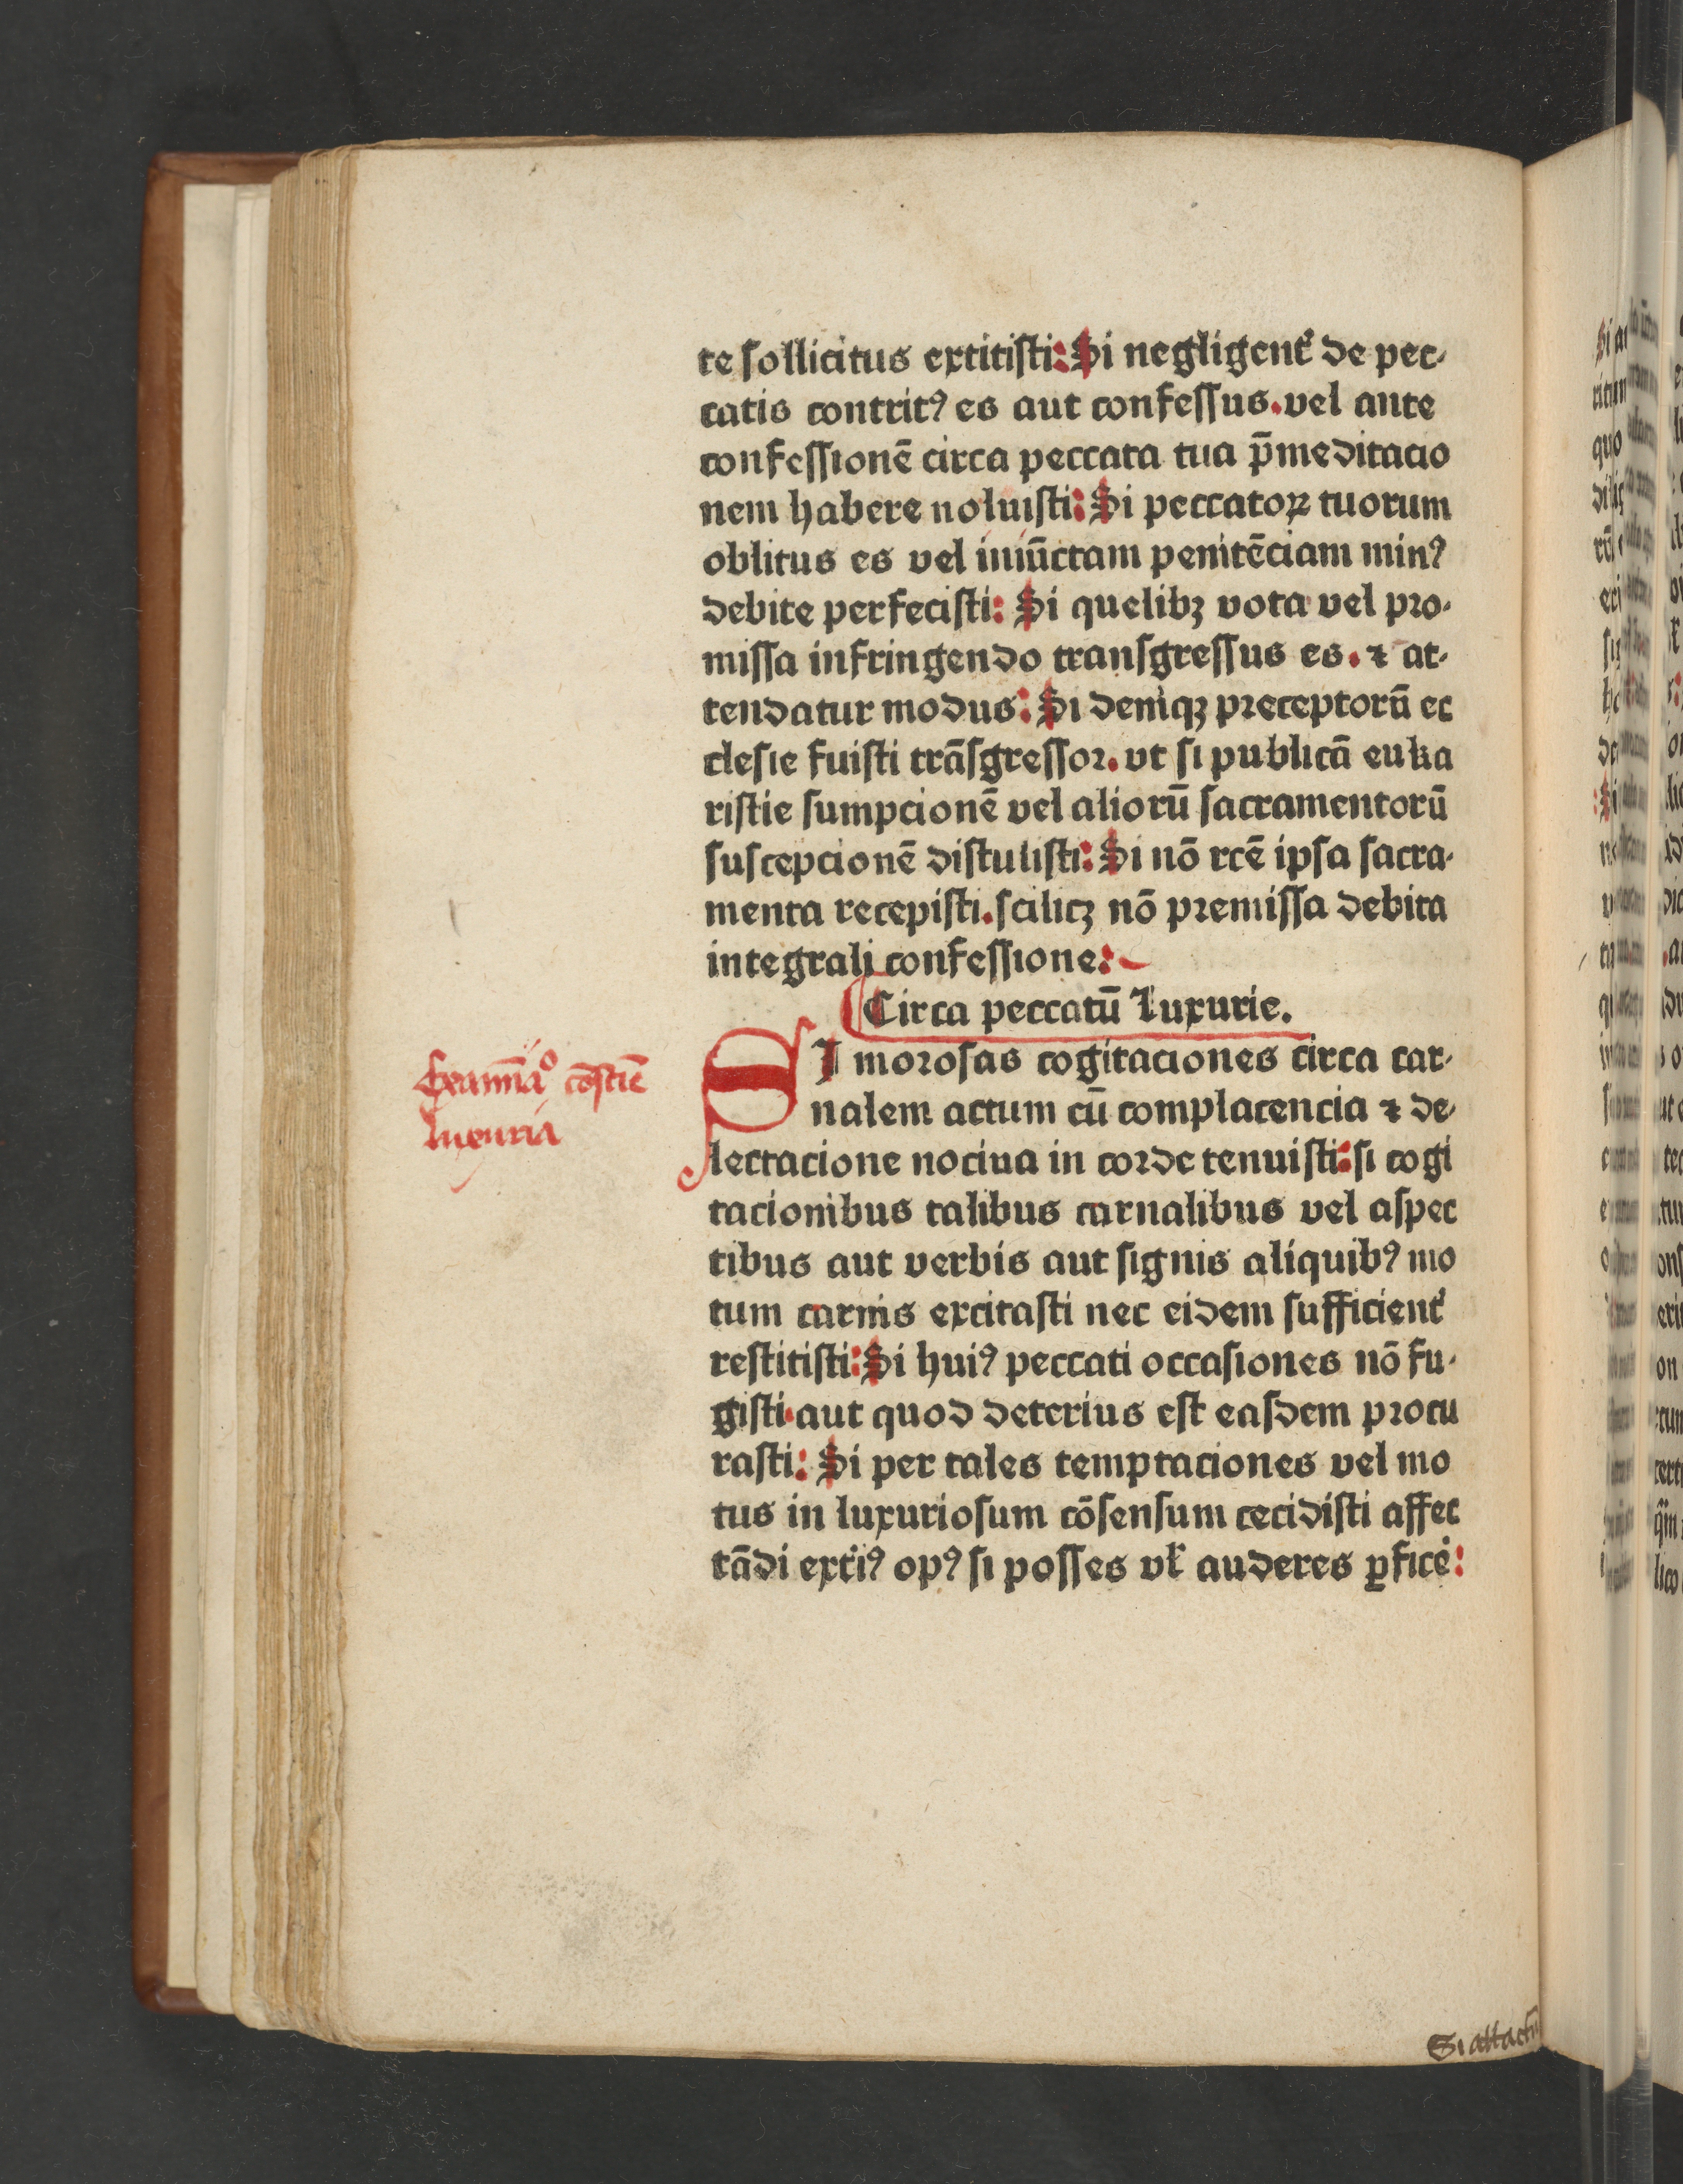 te sollicitus extitisti: Si negligent᷑ de pec-
catis contritꝰ es aut confessus. vel ante
confessionē circa peccata tua p̄meditacio
nem habere noluisti: Si peccatoꝝ tuorum
oblitus es vel iniūctam penitēciam minꝰ
debite perfecisti: Si quelibꝫ vota vel pro-
missa infringendo transgressus es. ⁊ at-
tendatur modus: Si deniqꝫ preceptorū ec
clesie fuisti trāsgressor. vt si publicā euka
ristie sumpcionē vel aliorū sacramentorū
suscepcionē distulisti: Si nō rcē ipsa sacra-
menta recepisti. scilicꝫ nō premissa debita
integrali confessione:
Circa peccatū Luxurie.
SI morosas cogitaciones circa car-
nalem actum cū complacencia ⁊ de-
lectacione nociua in corde tenuisti: si cogi
tacionibus talibus carnalibus vel aspec
tibus aut verbis aut signis aliquibꝰ mo
tum carnis excitasti nec eidem sufficient᷑
restitisti: Si huiꝰ peccati occasiones nō fu-
gisti. aut quod deterius est easdem procu
rasti: Si per tales temptaciones vel mo
tus in luxuriosum cōsensum cecidisti affec
tādi ext᷑iꝰ opꝰ si posses vl̄ auderes ꝑfice᷑:
Si attactū